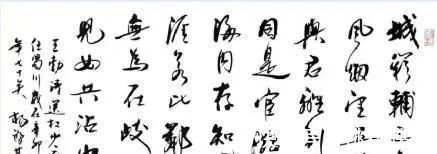 城闕輔
風烟望五
與君離別
同是宦游
海内存知
涯若比鄰
無為在歧
兒女共沾
王勃詩送杜少府
任蜀川歲在辛卯
年七十矣